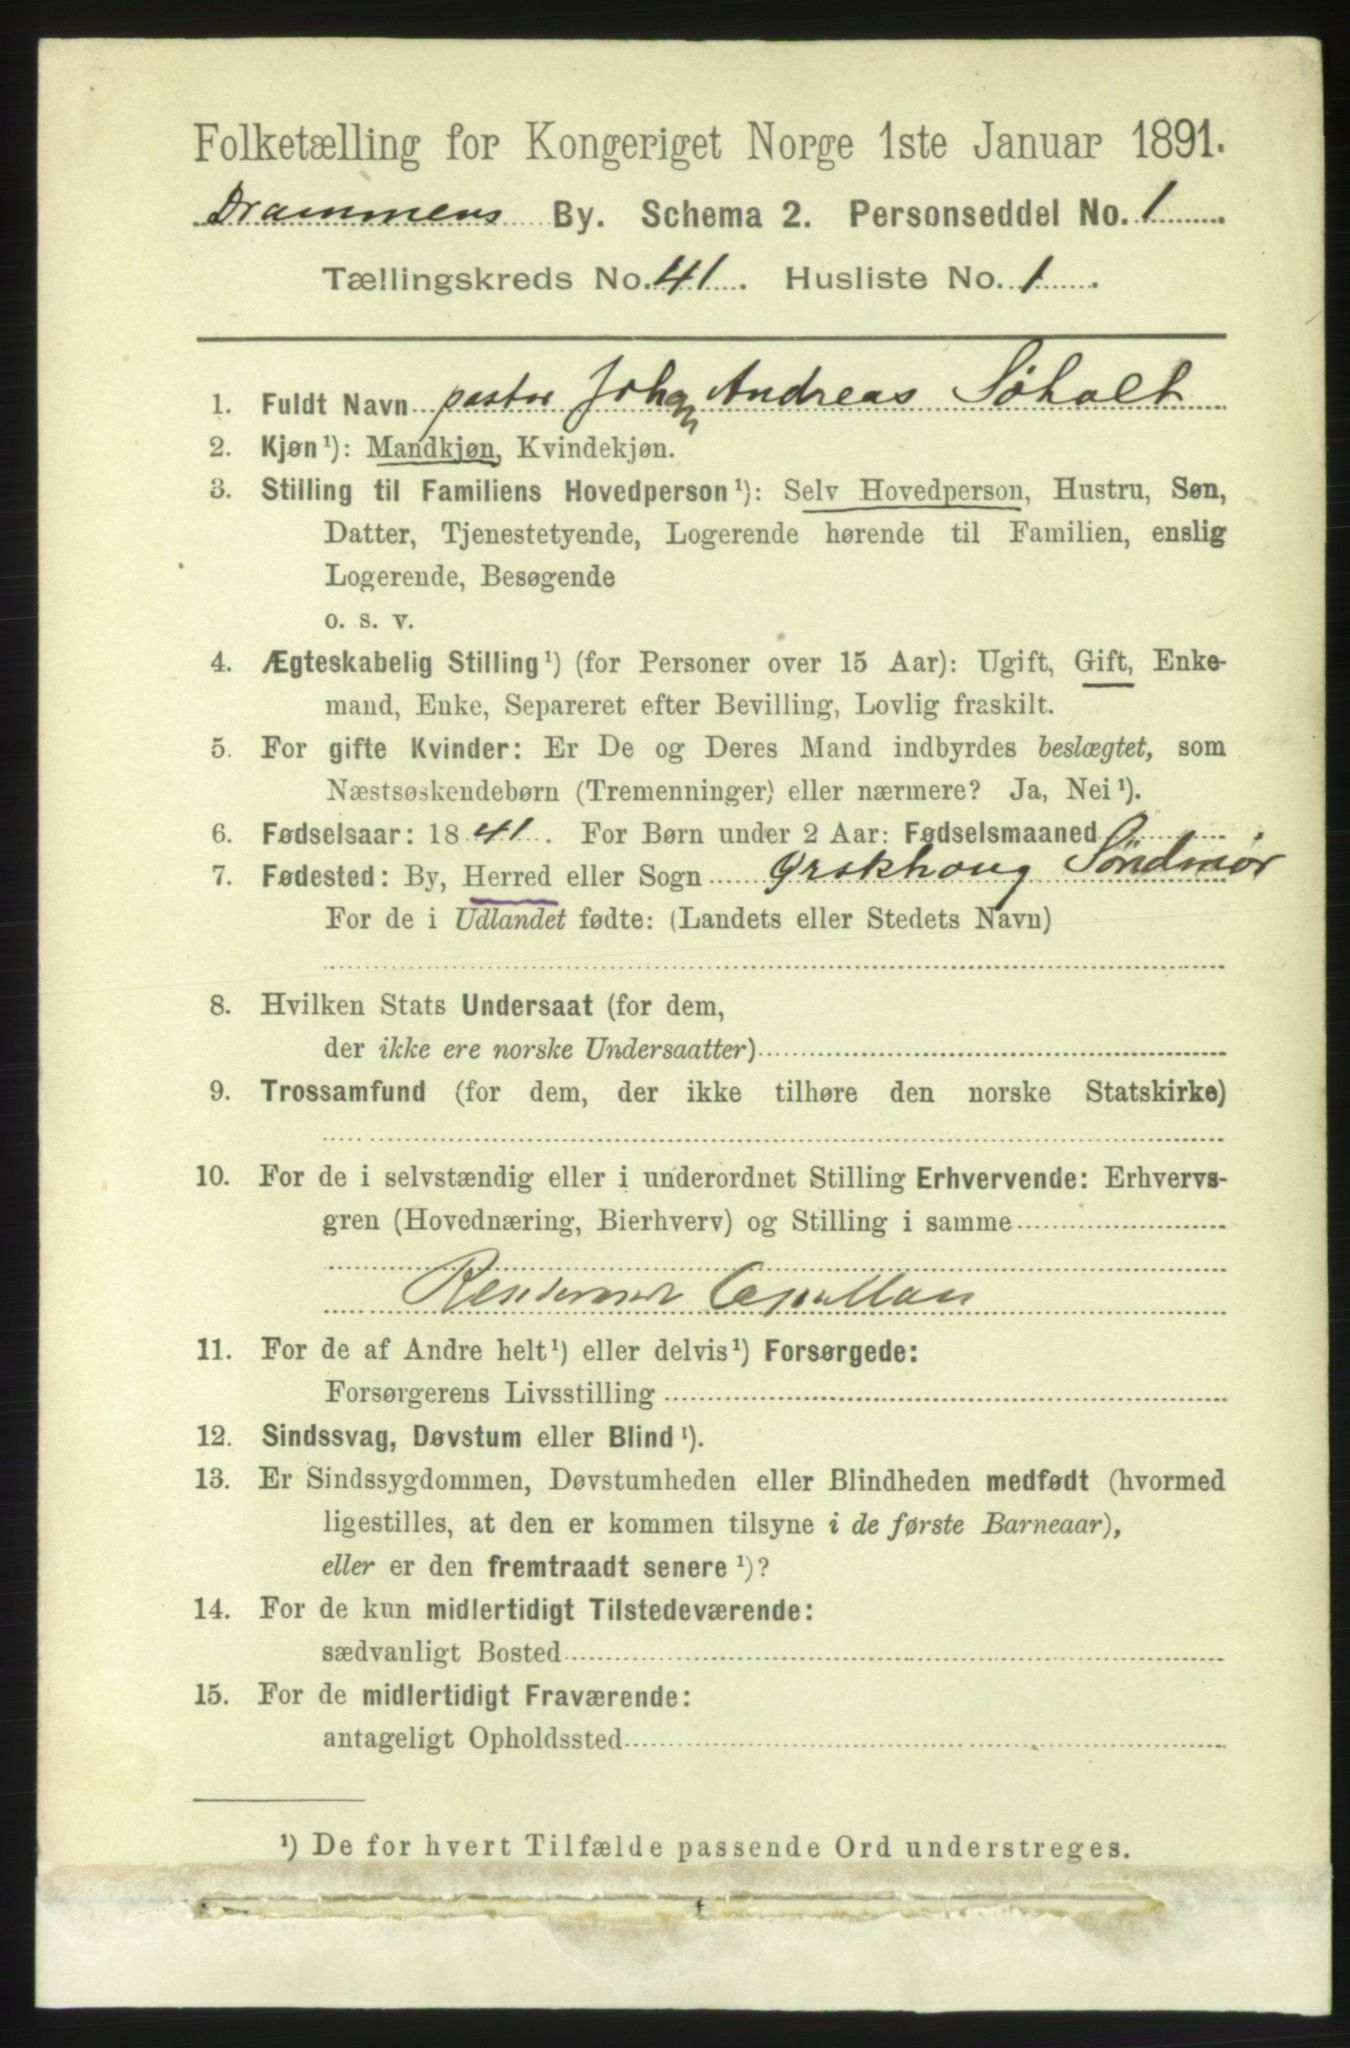 Folketælling for Kongeriget Norge 1ste Januar 1891.
Drammens By. Schema 2. Personseddel No. 1
Tællingskreds No. 41. Husliste No. 1.
1. Fuldt Navn pastor Johan Andreas Søholt
2. Kjøn¹): Mandkjøn, Kvindekjøn.
3. Stilling til Familiens Hovedperson¹): Selv Hovedperson, Hustru, Søn,
Datter, Tjenestetyende, Logerende hørende til Familien, enslig
Logerende, Besøgende
o. s. v.
4. Ægteskabelig Stilling¹) (for Personer over 15 Aar): Ugift, Gift, Enke-
mand, Enke, Separeret efter Bevilling, Lovlig fraskilt.
5. For gifte Kvinder: Er De og Deres Mand indbyrdes beslægtet, som
Næstsøskendebørn (Tremenninger) eller nærmere? Ja, Nei¹).
6. Fødselsaar: 1841. For Børn under 2 Aar: Fødselsmaaned
7. Fødested: By, Herred eller Sogn Ørskhoug Söndmør
For de i Udlandet fødte: (Landets eller Stedets Navn)
8. Hvilken Stats Undersaat (for dem,
der ikke ere norske Undersaatter)
9. Trossamfund (for dem, der ikke tilhøre den norske Statskirke)
10. For de i selvstændig eller i underordnet Stilling Erhvervende: Erhvervs-
gren (Hovednæring, Bierhverv) og Stilling i samme
Residerende Capellan
11. For de af Andre helt¹) eller delvis¹) Forsørgede:
Forsørgerens Livsstilling
12. Sindssvag, Døvstum eller Blind¹).
13. Er Sindssygdommen, Døvstumheden eller Blindheden medfødt (hvormed
ligestilles, at den er kommen tilsyne i de første Barneaar),
eller er den fremtraadt senere¹)?
14. For de kun midlertidigt Tilstedeværende:
sædvanligt Bosted
15. For de midlertidigt Fraværende:
antageligt Opholdssted
¹) De for hvert Tilfælde passende Ord understreges.